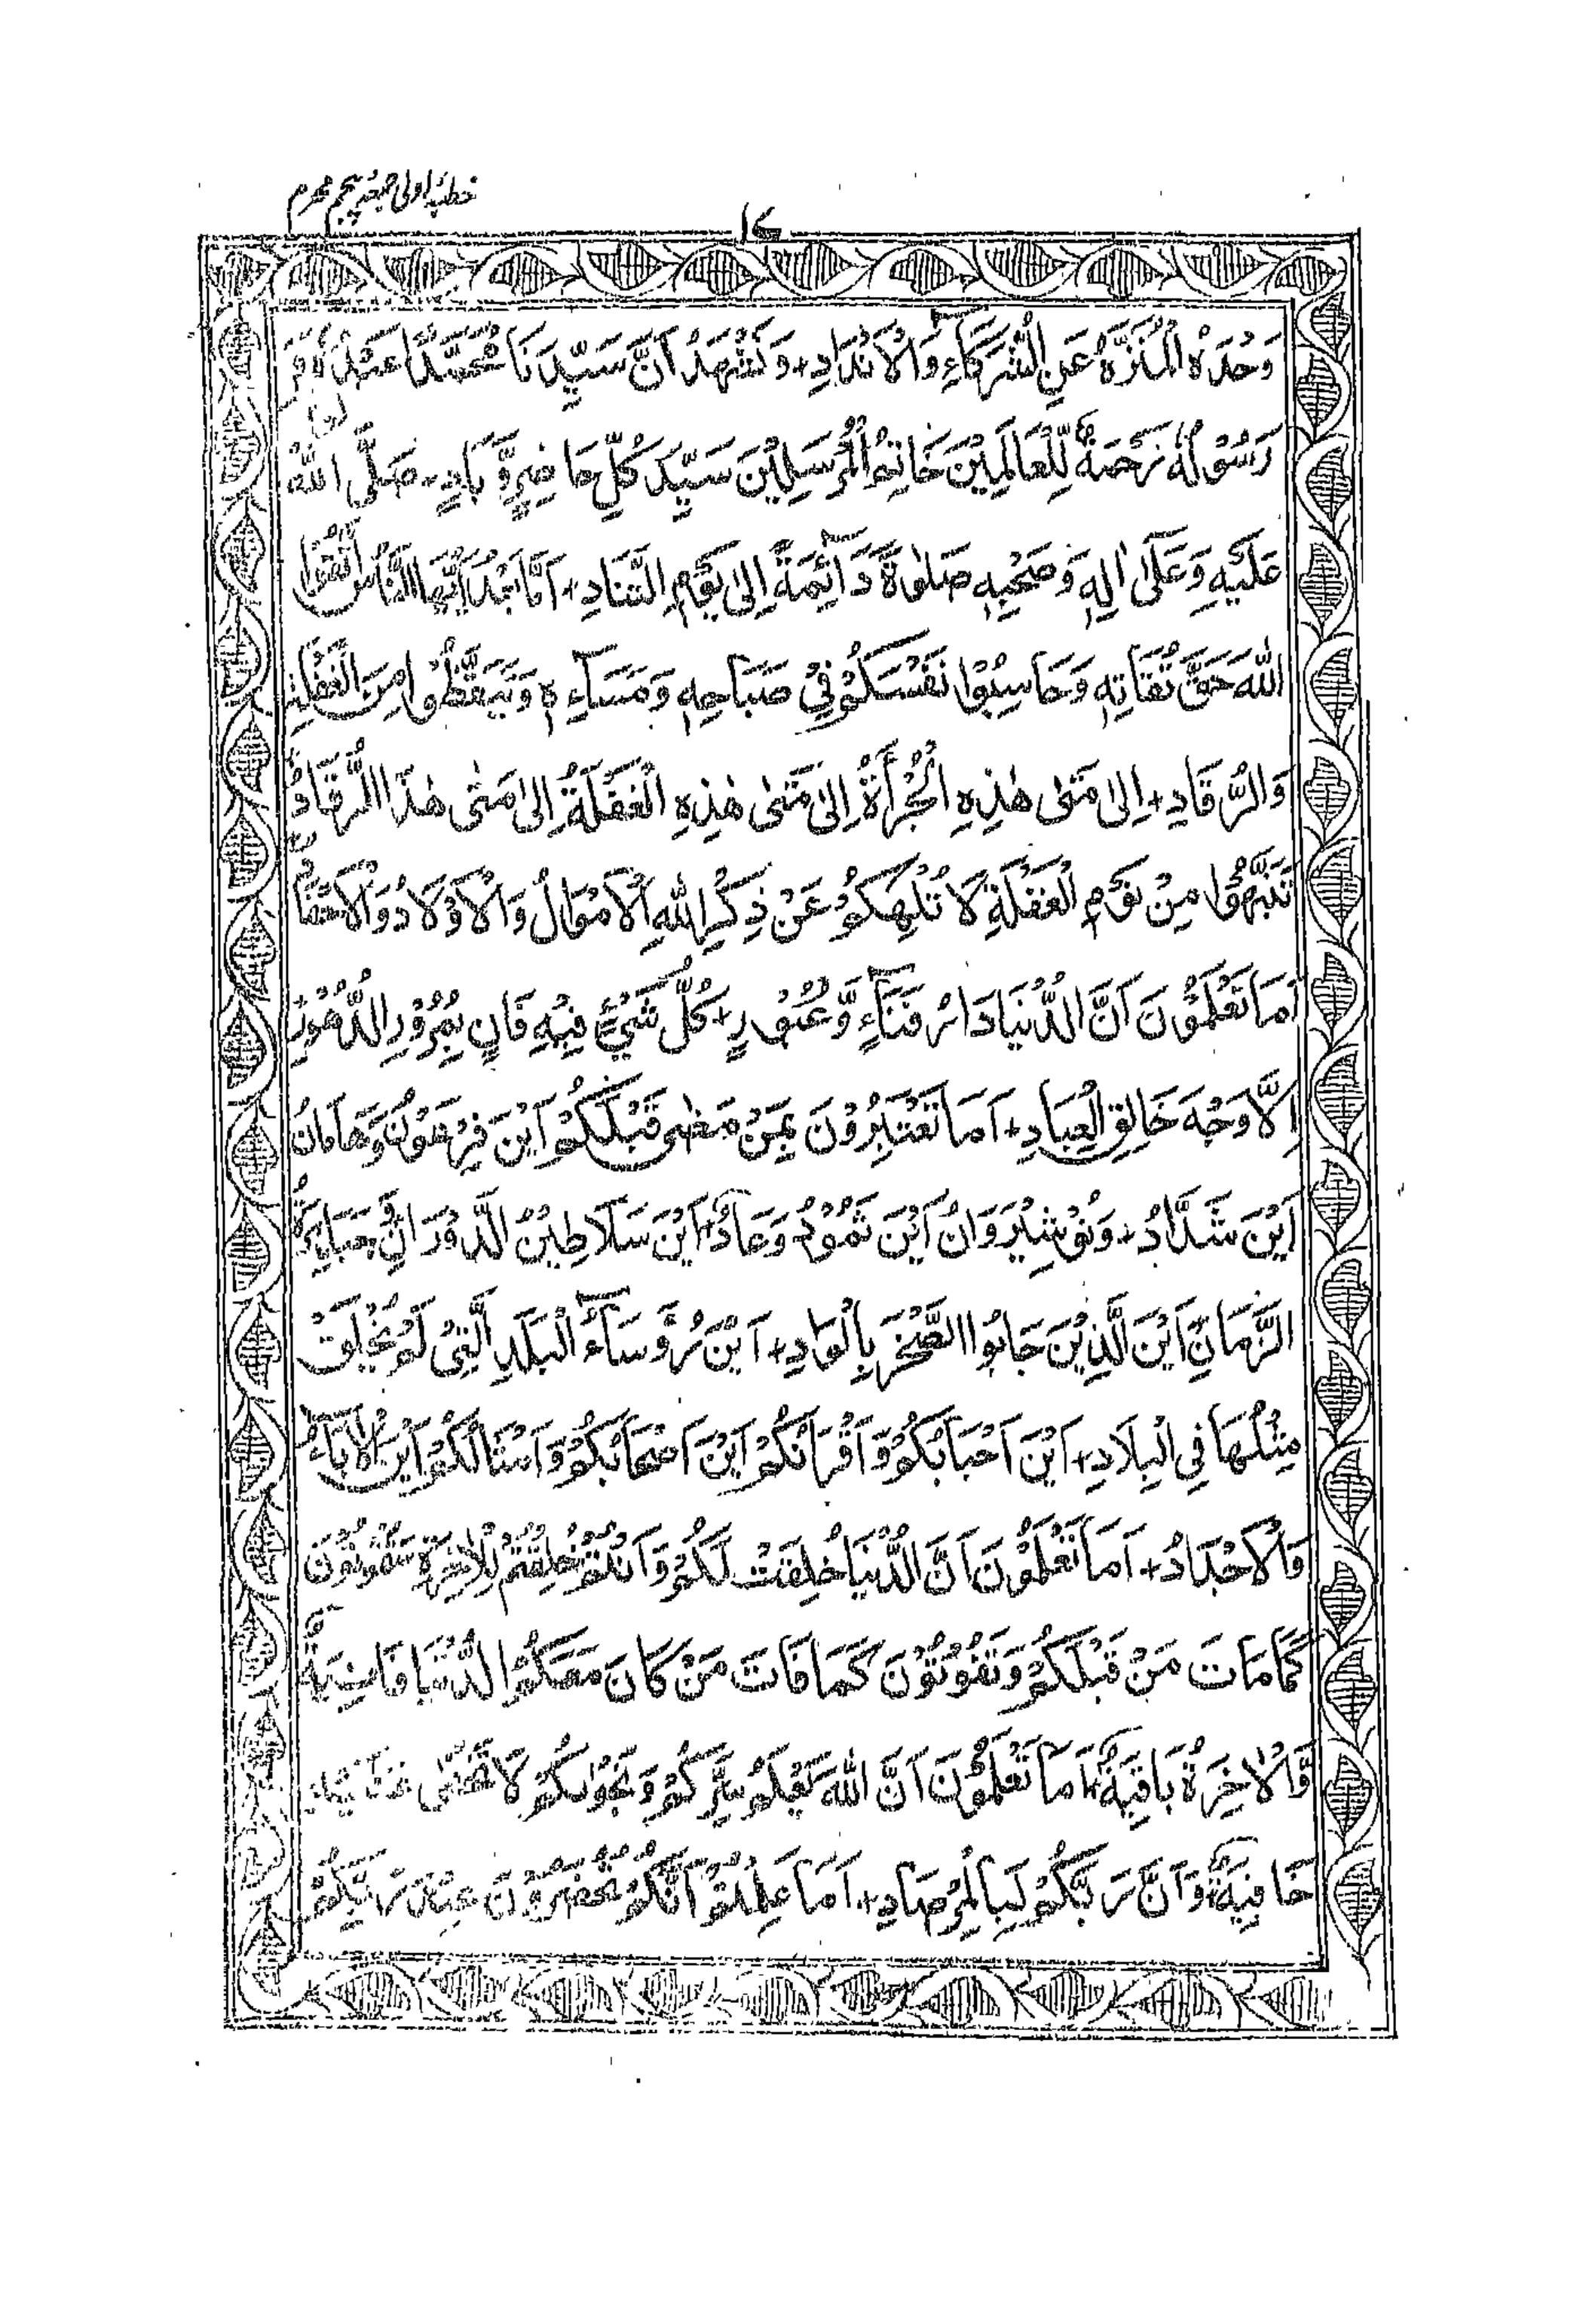 خطبۂ اولی جمعہ پنجم محرم
۱۷
وَحْدَهُ الْمُنَزَّهُ عَنِ الشُّرَكَآءِ وَالْاَنْدَادِ+ وَنَشْهَدُ اَنَّ سَيِّدَنَا مُحَمَّدًا عَبْدُهٗ وَ
رَسُوْلُهٗ رَحْمَةٌ لِّلْعَالَمِيْنَ خَاتِمُ الْمُرْسَلِيْنَ سَيِّدُ كُلِّ حَاضِرٍ وَّ بَادٍ+ صَلَّى اللهُ
عَلَيْهِ وَعَلٰى اٰلِهٖ وَصَحْبِهٖ صَلٰوةً دَآئِمَةً اِلٰى يَوْمِ التَّنَادِ+ اَمَّا بَعْدُ اَيُّهَا النَّاسُ اتَّقُوا
اللهَ حَقَّ تُقَاتِهٖ وَحَاسِبُوْا نَفْسَكُمْ فِيْ صَبَاحِهٖ وَمَسَآءِهٖ وَتَيَقَّظُوْا مِنَ الْغَفْلَةِ
وَالرُّقَادِ+ اِلٰى مَتٰى هٰذِهِ الْجُرْأَةُ اِلٰى مَتٰى هٰذِهِ الْغَفْلَةُ اِلٰى مَتٰى هٰذَا الرُّقَادُ
تَنَبَّهُوْا مِنْ نَوْمِ الْغَفْلَةِ لَا تُلْهِكُمْ عَنْ ذِكْرِ اللهِ الْاَمْوَالُ وَالْاَوْلَادُ وَالْاَحْفَادُ
اَمَا تَعْلَمُوْنَ اَنَّ الدُّنْيَا دَارُ فَنَآءٍ وَّ عُبُوْرٍ+ كُلُّ شَيْءٍ فِيْهِ فَانٍ بِمُرُوْرِ الدُّهُوْرِ
اِلَّا وَجْهَ خَالِقِ الْعِبَادِ+ اَمَا تَعْتَبِرُوْنَ بِمَنْ مَضٰى قَبْلَكُمْ اَيْنَ فِرْعَوْنُ وَهَامَانُ
اَيْنَ شَدَّادُ+ وَنُوْشِيْرَوَانُ اَيْنَ ثَمُوْدُ وَعَادُ+ اَيْنَ سَلَاطِيْنُ الدَّوْرَانِ جَبَابِرَةُ
الزَّمَانِ اَيْنَ الَّذِيْنَ جَابُوا الصَّخْرَ بِالْوَادِ+ اَيْنَ رُؤَسَآءُ الْبَلَدِ الَّتِيْ لَمْ يُخْلَقْ
مِثْلُهَا فِي الْبِلَادِ+ اَيْنَ اَحْبَابُكُمْ وَاَقْرَانُكُمْ اَيْنَ اَصْحَابُكُمْ وَاَمْثَالُكُمْ اَيْنَ الْاٰبَآءُ
وَالْاَجْدَادُ+ اَمَا تَعْلَمُوْنَ اَنَّ الدُّنْيَا خُلِقَتْ لَكُمْ وَاَنْتُمْ خُلِقْتُمْ لِلْاٰخِرَةِ سَتَمُوْتُوْنَ
كَمَا مَاتَ مَنْ قَبْلَكُمْ وَتَفُوْتُوْنَ كَمَا فَاتَ مَنْ كَانَ مَعَكُمُ الدُّنْيَا فَانِيَةٌ
وَّالْاٰخِرَةُ بَاقِيَةٌ+ اَمَا تَعْلَمُوْنَ اَنَّ اللهَ يَعْلَمُ سِرَّكُمْ وَنَجْوٰىكُمْ لَا تَخْفٰى
خَافِيَةٌ وَاَنَّ رَبَّكُمْ لَبِالْمِرْصَادِ+ اَمَا عَلِمْتُمْ اَنَّكُمْ مُحْضَرُوْنَ عِنْدَ رَبِّكُمْ